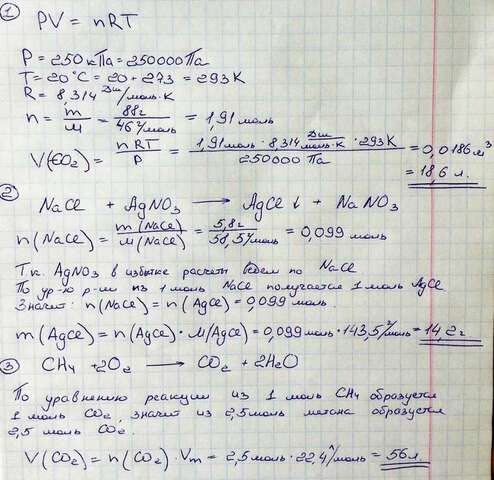 1 PV = nRT
P = 250 кПа = 250000 Па
T = 20°C = 20 + 273 = 293 K
R = 8,314 Дж/моль·K
n = m/M = 88г/46г/моль = 1,91 моль
V(CO₂) = nRT/P = 1,91 моль · 8,314 Дж/моль·K · 293 K / 250000 Па = 0,0186 м³
= 18,6 л.
2 NaCl + AgNO₃ → AgCl↓ + NaNO₃
n(NaCl) = m(NaCl)/M(NaCl) = 5,8г/58,5г/моль = 0,099 моль
Т.к. AgNO₃ в избытке расчеты ведем по NaCl
По ур-ю р-ии из 1 моль NaCl получается 1 моль AgCl
Значит: n(NaCl) = n(AgCl) = 0,099 моль.
m(AgCl) = n(AgCl) · M(AgCl) = 0,099 моль · 143,5 г/моль = 14,2 г
3 CH₄ + 2O₂ → CO₂ + 2H₂O
По уравнению реакции из 1 моль CH₄ образуется
1 моль CO₂, значит из 2,5 моль метана образуется
2,5 моль CO₂.
V(CO₂) = n(CO₂) · Vm = 2,5 моль · 22,4 л/моль = 56 л.